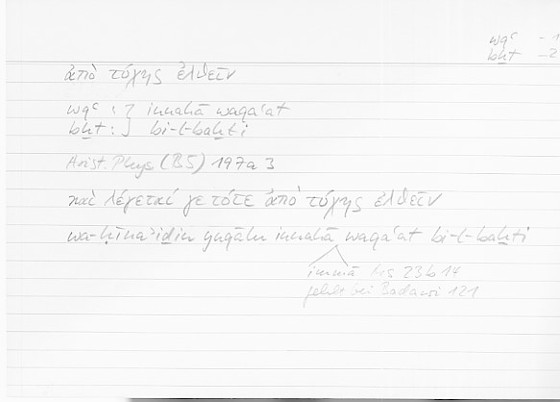 wqʿ – 1
bḫt – 2
ἀπὸ τύχης ἐλθεῖν
wqʿ : } innahā waqaʿat
bḫt : } bi-l-baḫti
Arist. Phys (B5) 197a 3
καὶ λέγεταί γε τότε ἀπὸ τύχης ἐλθεῖν
wa-ḥīnaʾiḏin yuqālu innahā waqaʿat bi-l-baḫti
innahā hs 23b14
fehlt bei Badawi 121